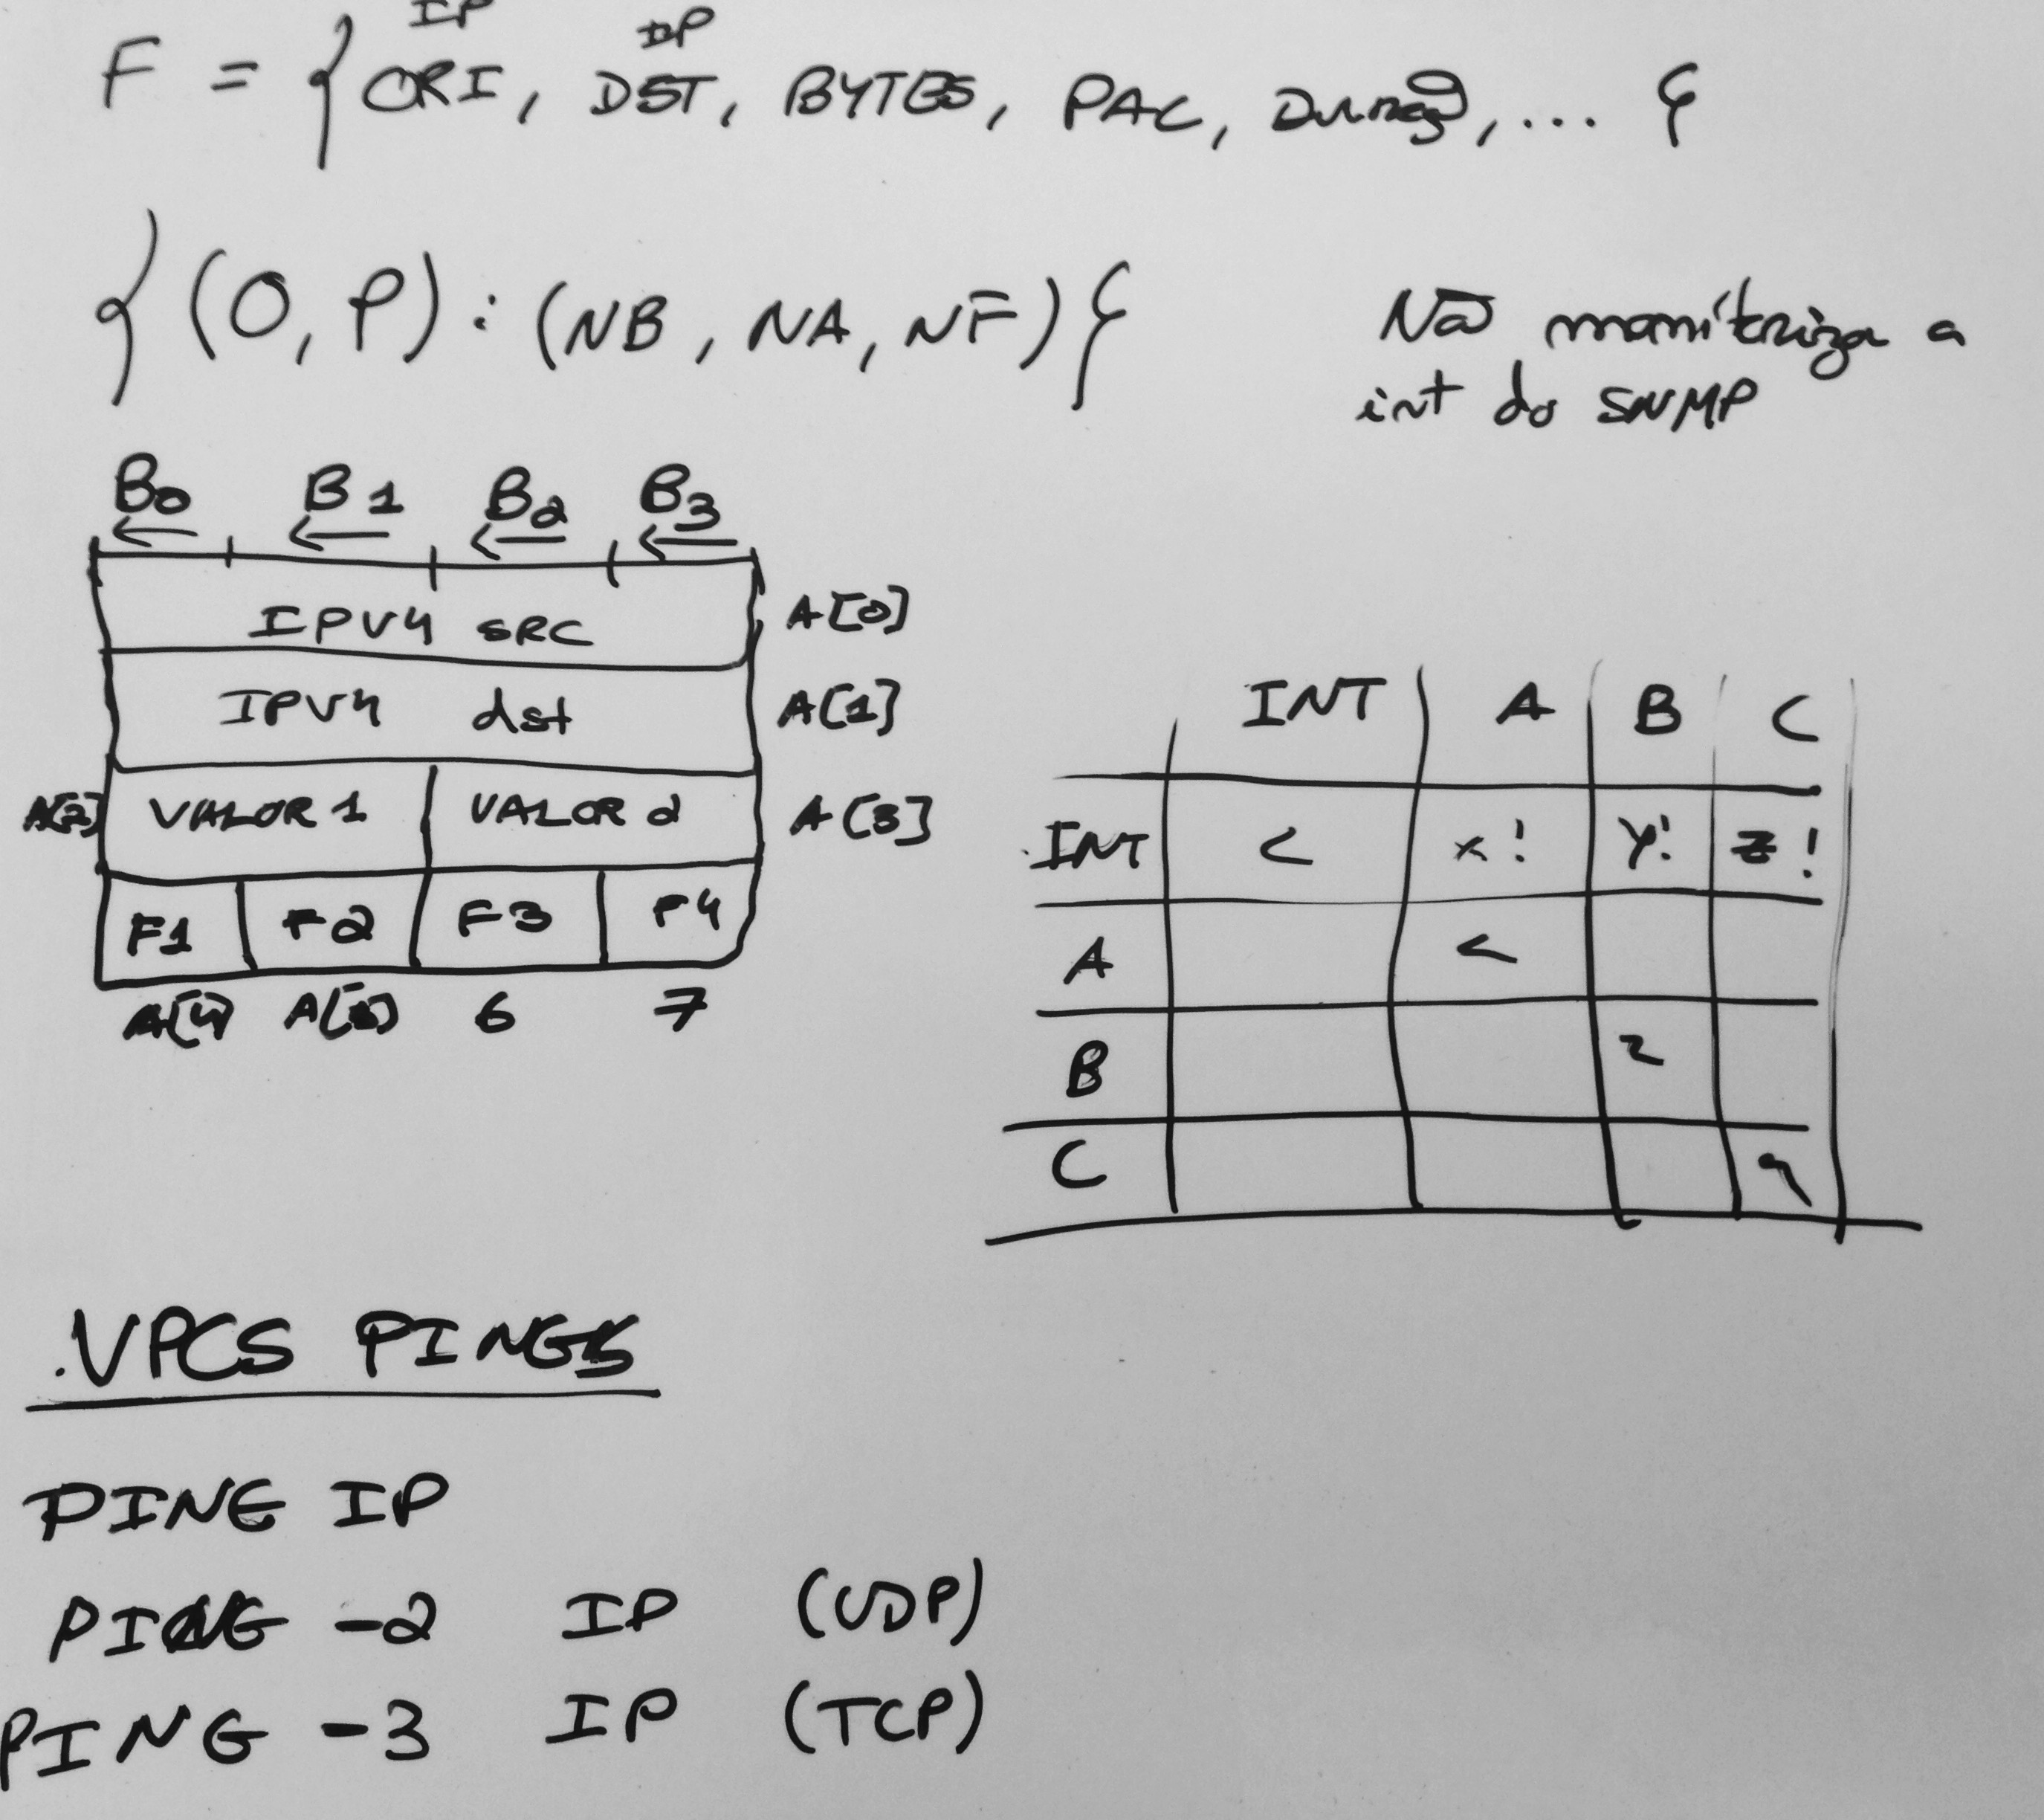 IP IP
F = { ORI, DST, BYTES, PAC, Duração, ... }
{ (O, P) : (NB, NA, NF) }
Não monitoriza a
int do SNMP
B0 B1 B2 B3
IPV4 SRC A[0]
IPV4 dst A[1]
A[2] VALOR 1 VALOR 2 A[3]
F1 F2 F3 F4
A[4] A[5] 6 7
INT A B C
INT < x! Y! Z!
A <
B
C
.VPCS PINGS
PING IP
PING -2 IP (UDP)
PING -3 IP (TCP)